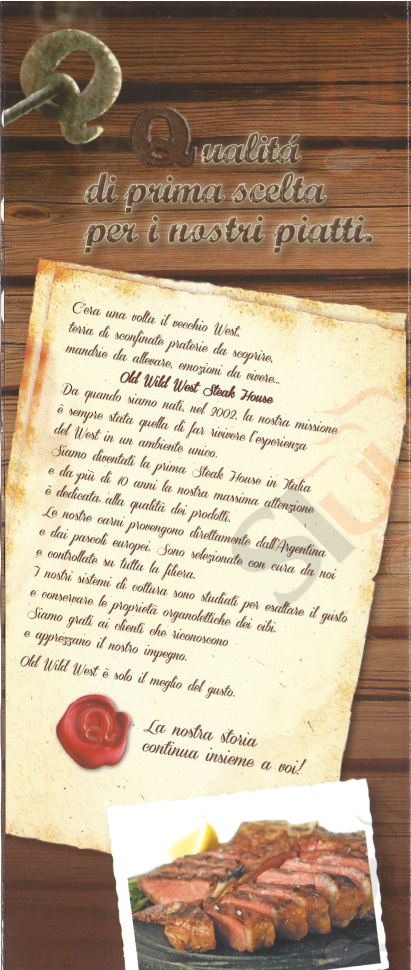 Q
Qualitá
di prima scelta
per i nostri piatti.
C'era una volta il vecchio West,
terra di sconfinate praterie da scoprire,
mandrie da allevare, emozioni da vivere...
Old Wild West Steak House
Da quando siamo nati, nel 2002, la nostra missione
è sempre stata quella di far rivivere l'esperienza
del West in un ambiente unico.
Siamo diventati la prima Steak House in Italia
e da più di 10 anni la nostra massima attenzione
è dedicata alla qualità dei prodotti.
Le nostre carni provengono direttamente dall'Argentina
e dai pascoli europei. Sono selezionate con cura da noi
e controllate su tutta la filiera.
I nostri sistemi di cottura sono studiati per esaltare il gusto
e conservare le proprietà organolettiche dei cibi.
Siamo grati ai clienti che riconoscono
e apprezzano il nostro impegno.
Old Wild West è solo il meglio del gusto.
Q
La nostra storia
continua insieme a voi!